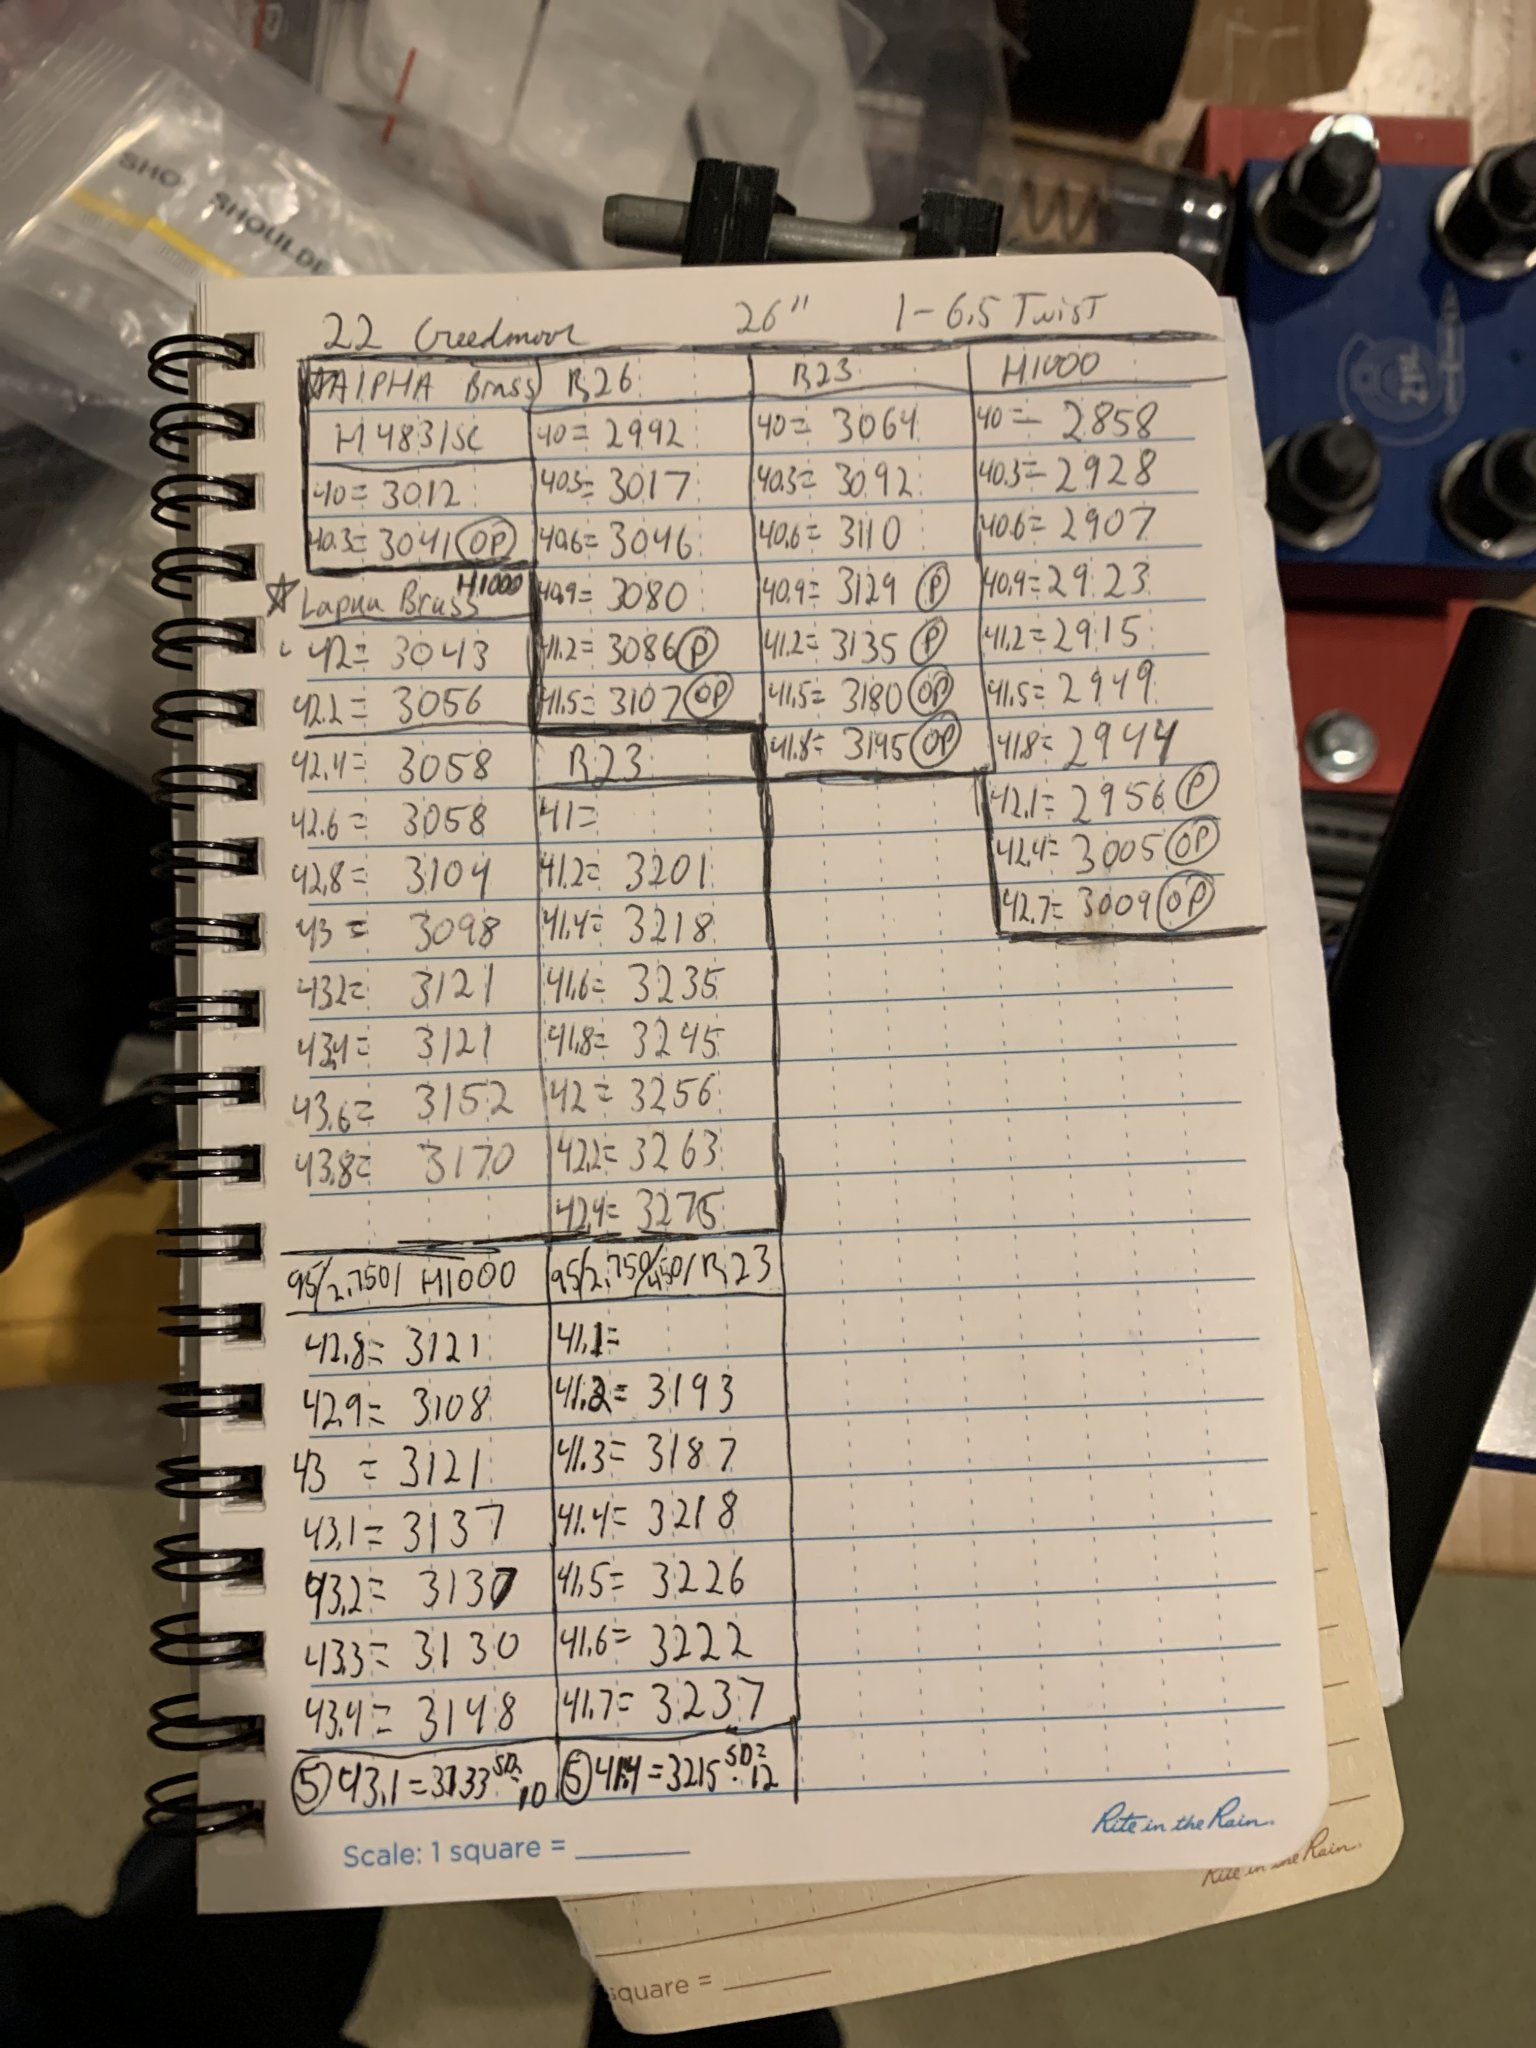 SHO
SHOULDE
22 Creedmoor 26" 1-6.5 Twist
☆ AlPHA Brass
H4831SC
40 = 3012
40.3= 3041 OP
R26
40 = 2992
40.3= 3017
40.6= 3046
40.9= 3080
41.2= 3086 P
41.5= 3107 OP
R23
40= 3064
40.3= 3092
40.6= 3110
40.9= 3129 P
41.2= 3135 P
41.5= 3180 OP
41.8= 3195 OP
H1000
40 = 2858
40.3= 2928
40.6= 2907
40.9= 2923
41.2= 2915
41.5= 2949
41.8= 2944
42.1= 2956 P
42.4= 3005 OP
42.7= 3009 OP
☆ Lapua Brass H1000
42= 3043
42.2= 3056
42.4= 3058
42.6= 3058
42.8= 3104
43 = 3098
43.2= 3121
43.4= 3121
43.6= 3152
43.8= 3170
R23
41=
41.2= 3201
41.4= 3218
41.6= 3235
41.8= 3245
42 = 3256
42.2= 3263
42.4= 3275
95/2.750/ H1000
42.8= 3121
42.9= 3108
43 = 3121
43.1= 3137
43.2= 3137
43.3= 3130
43.4= 3148
5 43.1=3133 SD= 10
95/2.750/.450/R23
41.1=
41.2= 3193
41.3= 3187
41.4= 3218
41.5= 3226
41.6= 3222
41.7= 3237
5 41.4=3215 SD= 12
Rite in the Rain.
Scale: 1 square =
Rite in the Rain.
square =